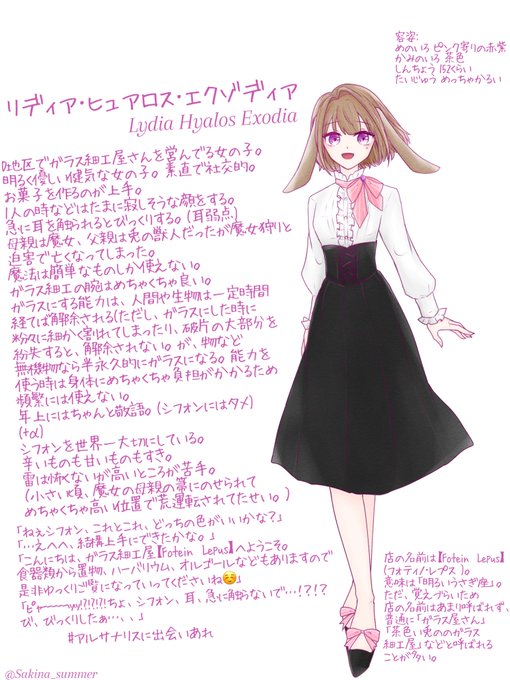 容姿:
めのいろ ピンク寄りの赤紫
かみのいろ 茶色
しんちょう 152くらい
たいじゅう めっちゃかるい
リディア・ヒュアロス・エクゾディア
Lydia Hyalos Exodia
D地区でガラス細工屋さんを営んでる女の子。
明るく優しい健気な女の子。素直で社交的。
お菓子を作るのが上手。
1人の時などはたまに寂しそうな顔をする。
急に耳を触られるとびっくりする。(耳弱点)
母親は魔女、父親は兎の獣人だったが魔女狩りと
迫害で亡くなってしまった。
魔法は簡単なものしか使えない。
ガラス細工の腕はめちゃくちゃ良い。
ガラスにする能力は、人間や生物は一定時間
経てば解除される(ただし、ガラスにした時に
粉々に細かく割れてしまったり、破片の大部分を
紛失すると、解除されない。が、物など
無機物なら半永久的にガラスになる。能力を
使う時は身体にめちゃくちゃ負担がかかるため
頻繁には使えない。
年上にはちゃんと敬語。(シフォンにはタメ)
(+α)
シフォンを世界一大切にしている。
辛いものも甘いものもすき。
雷は怖くないが高いところが苦手。
(小さい頃、魔女の母親の箒にのせられて
めちゃくちゃ高い位置で荒運転されてたせい。)
「ねぇシフォン、これとこれ、どっちの色がいいかな?」
「…えへへ、結構上手にできたかな。」
「こんにちは、ガラス細工屋【Fotein Lepus】へようこそ。
食器類から置物、ハーバリウム、オルゴールなどもありますので
是非ゆっくりご覧になっていってくださいね☺️」
「ピャーーーッッ!?!?!?ちょ、シフォン、耳、急に触らないで…!?!?
び、びっくりしたぁ…、、」
#アルサナリスに出会いあれ
店の名前は【Fotein Lepus】
(フォティノ・レプス)。
意味は「明るいうさぎ座」。
ただ、覚えづらいため
店の名前はあまり呼ばれず、
普通に「ガラス屋さん」
「茶色い兎ののガラス
細工屋」などと呼ばれる
ことが多い。
@Sakina_summer